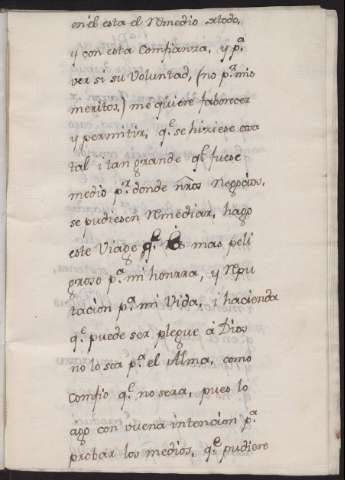 en èl esta el remedio atodo,
y con esta Comfianza, y p.ª
ver si su Voluntad, (no p.ª mis
meritos,) me quiere faborecer
y permitir, q.e se hiziese cosa
tal i tan grande q.e fuese
medio p.ª donde nr̃os Negocios,
se pudiesen remediar, hago
este Viage q.e es mas peli
groso p.ª mi honrara, y repu
tacion p.ª mi Vida, i hacienda
q.e puede ser plegue à Dios
no lo sea p.ª el Alma, como
comfio q.e no sera, pues lo
ago con vuena intencion p.ª
probar los medios, q.e pudiere